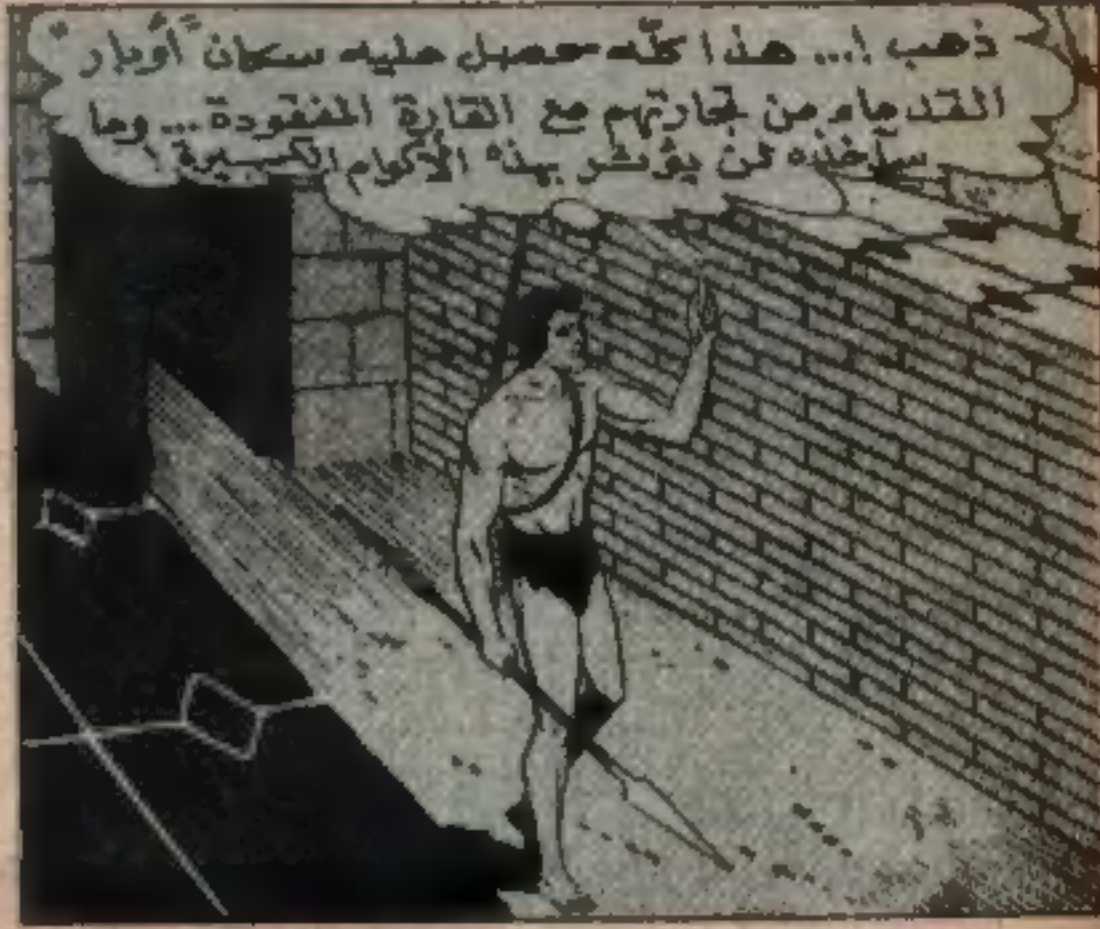 ذهب !... هذا كلّه حصل عليه سكان "أوبار"
القدماء من تجارتهم مع القارة المفقودة... وما
سآخذه لن يؤثر بهذه الأكوام الكبيرة !